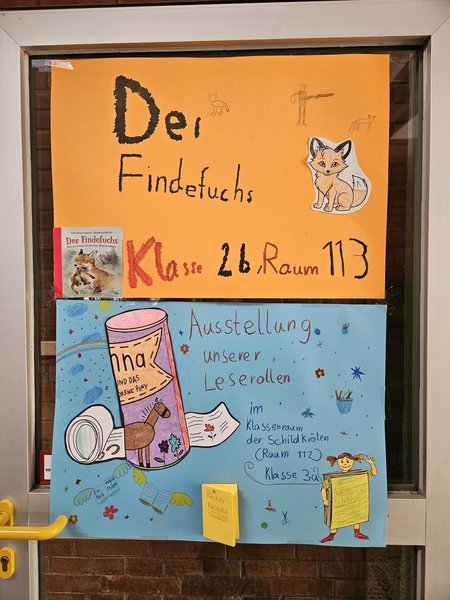 Der
Findefuchs
Der Findefuchs
Klasse 2b, Raum 113
Ausstellung
unserer
Leserollen
nna
UND DAS
im
Klassenraum
der Schildkröten
(Raum 112)
Klasse 3a